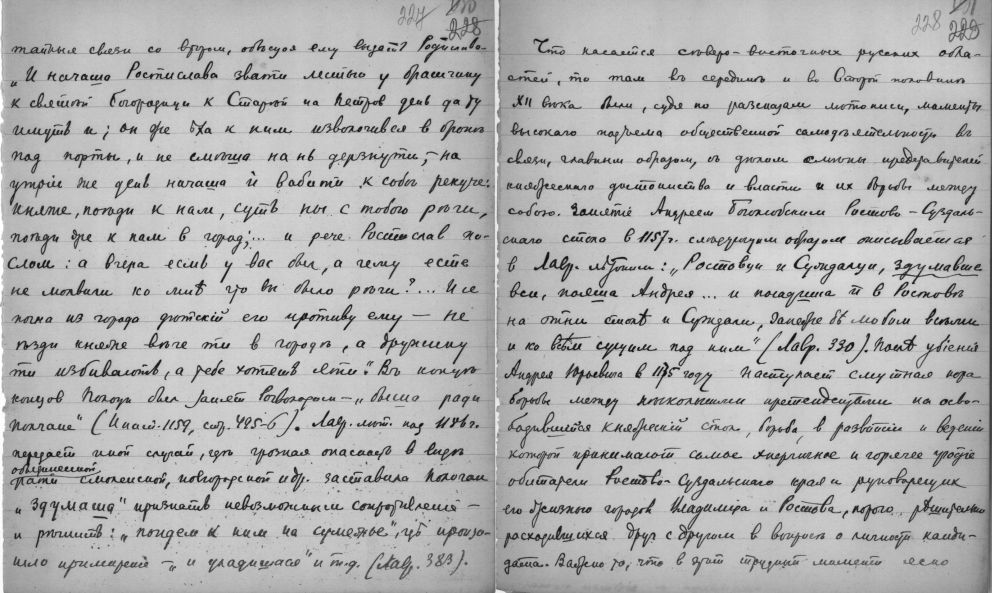 227 228
тайныя связи со Вторым, обѣщая ему выдать Ростислава.
„И начаша Ростислава звати лестью у братщину
к святѣй Богородици к Старѣй на Петров день да ту
имуть и; он же ѣха к ним изволочивъся в бронѣ
под порты, и не смѣша на нь дерзнути, — на
утрій же день начаша и вабити к собѣ рекуче:
княже, поѣди к нам, суть ны с тобою рѣчи,
поѣди же к нам в город;... и рече Ростислав по-
слом: а вчера есмь у вас был, а чему есте
не молвили ко мнѣ что вы было рѣчи?... И се
погна из города дѣтскій его противу ему — не
ѣзди княже вѣче ти в городѣ, а дружину
ти избивають, а тебе хотять яти". Въ концѣ
концов Полоцк был занят Рогволодом — „быша ради
Полчане" (Ипат. 1159, стр. 495-6). Лавр. лѣт. под 1186 г.
передает иной случай, гдѣ грозная опасность в видѣ
объединенной
рати смоленской, новгородской и др. заставила Полочан
„здумаша" признать невозможным сопротивленіе —
и рѣшить: „поидем к ним на сумежье", гдѣ произо-
шло примиреніе — „и уладишася" и т.д. (Лавр. 383).
228 229
Что касается сѣверо-восточных русских обла-
стей, то там въ серединѣ и во второй половинѣ
XII вѣка были, судя по разсказам лѣтописи, моменты
высокаго подъема общественной самодѣятельности въ
связи, главным образом, съ дѣлом смѣны представителей
княжескаго достоинства и власти и их борьбы между
собою. Занятіе Андреем Боголюбским Ростово-Суздаль-
скаго стола в 1157 г. слѣдующим образом описывается
в Лавр. лѣтописи: „Ростовци и Суждалци, здумавше
вси, пояша Андрея... и посадиша и в Ростовѣ
на отни столѣ и Суждали, занеже бѣ любим всѣми
и ко всѣм сущим под ним" (Лавр. 330). Послѣ убіенія
Андрея Юрьевича в 1175 году наступает смутная пора
борьбы между нѣсколькими претендентами на осво-
бодившійся княжескій стол, борьба, в развитіи и веденіи
которой принимают самое энергичное и горячее участіе
обитатели Ростово-Суздальскаго края и руководящих
его жизнью городов Владиміра и Ростова, порою рѣшительно
расходившихся друг с другом в вопросѣ о личности канди-
дата. Важно то, что в этот трудный момент ясно